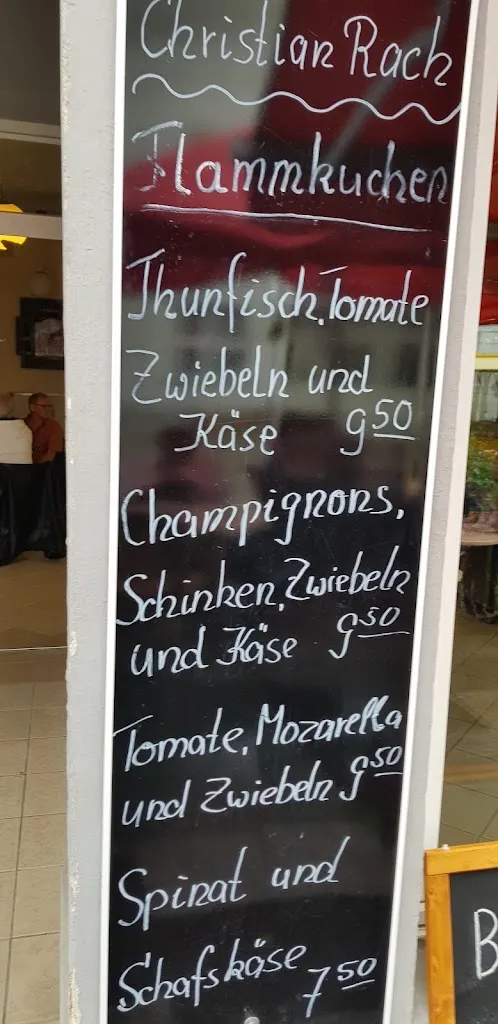 Christian Rach
Flammkuchen
Thunfisch, Tomate
Zwiebeln und
Käse 9 50
Champignons,
Schinken, Zwiebeln
und Käse 9 50
Tomate, Mozarella
und Zwiebeln 9 50
Spinat und
Schafskäse 7 50
B